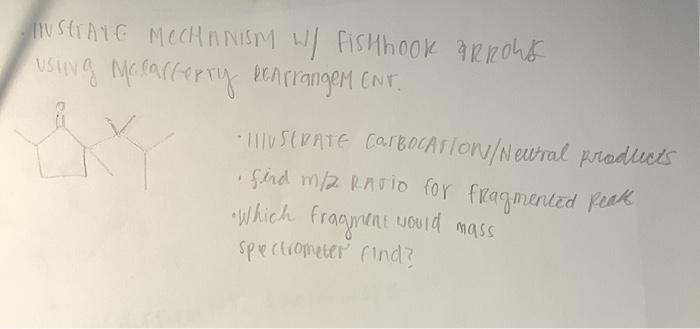 • Illustrate Mechanism w/ Fishhook arrows
using Mclafferty rearrangement.
O
• Illustrate carbocation/Neutral products
• find m/z Ratio for fragmented peak
• Which fragment would mass
spectrometer find?